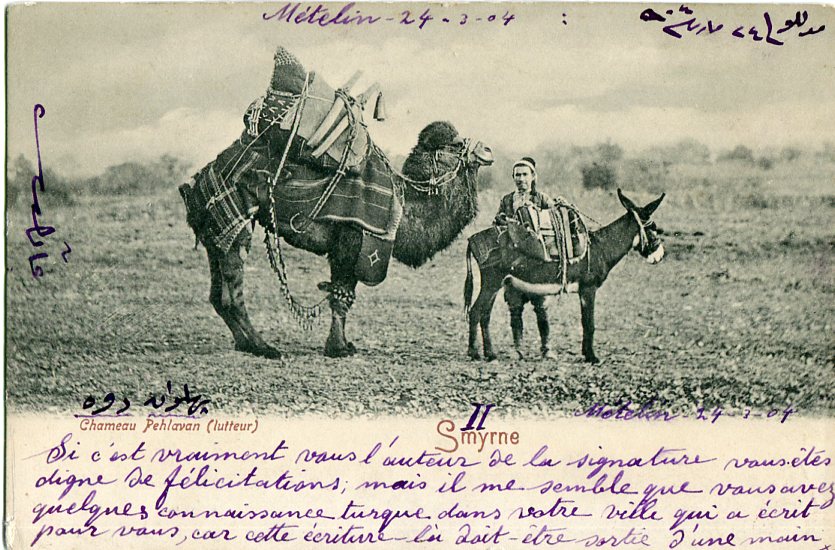 Mételin - 24 - 3 - 04 :
پهلوان دوه
Chameau Pehlavan (lutteur)
II
Smyrne
Mételin - 24 - 3 - 04
Si c'est vraiment vous l'auteur de la signature vous êtes
digne de félicitations; mais il me semble que vous avez
quelques connaissance turque dans votre ville qui a écrit
pour vous, car cette écriture-là doit-être sortie d'une main